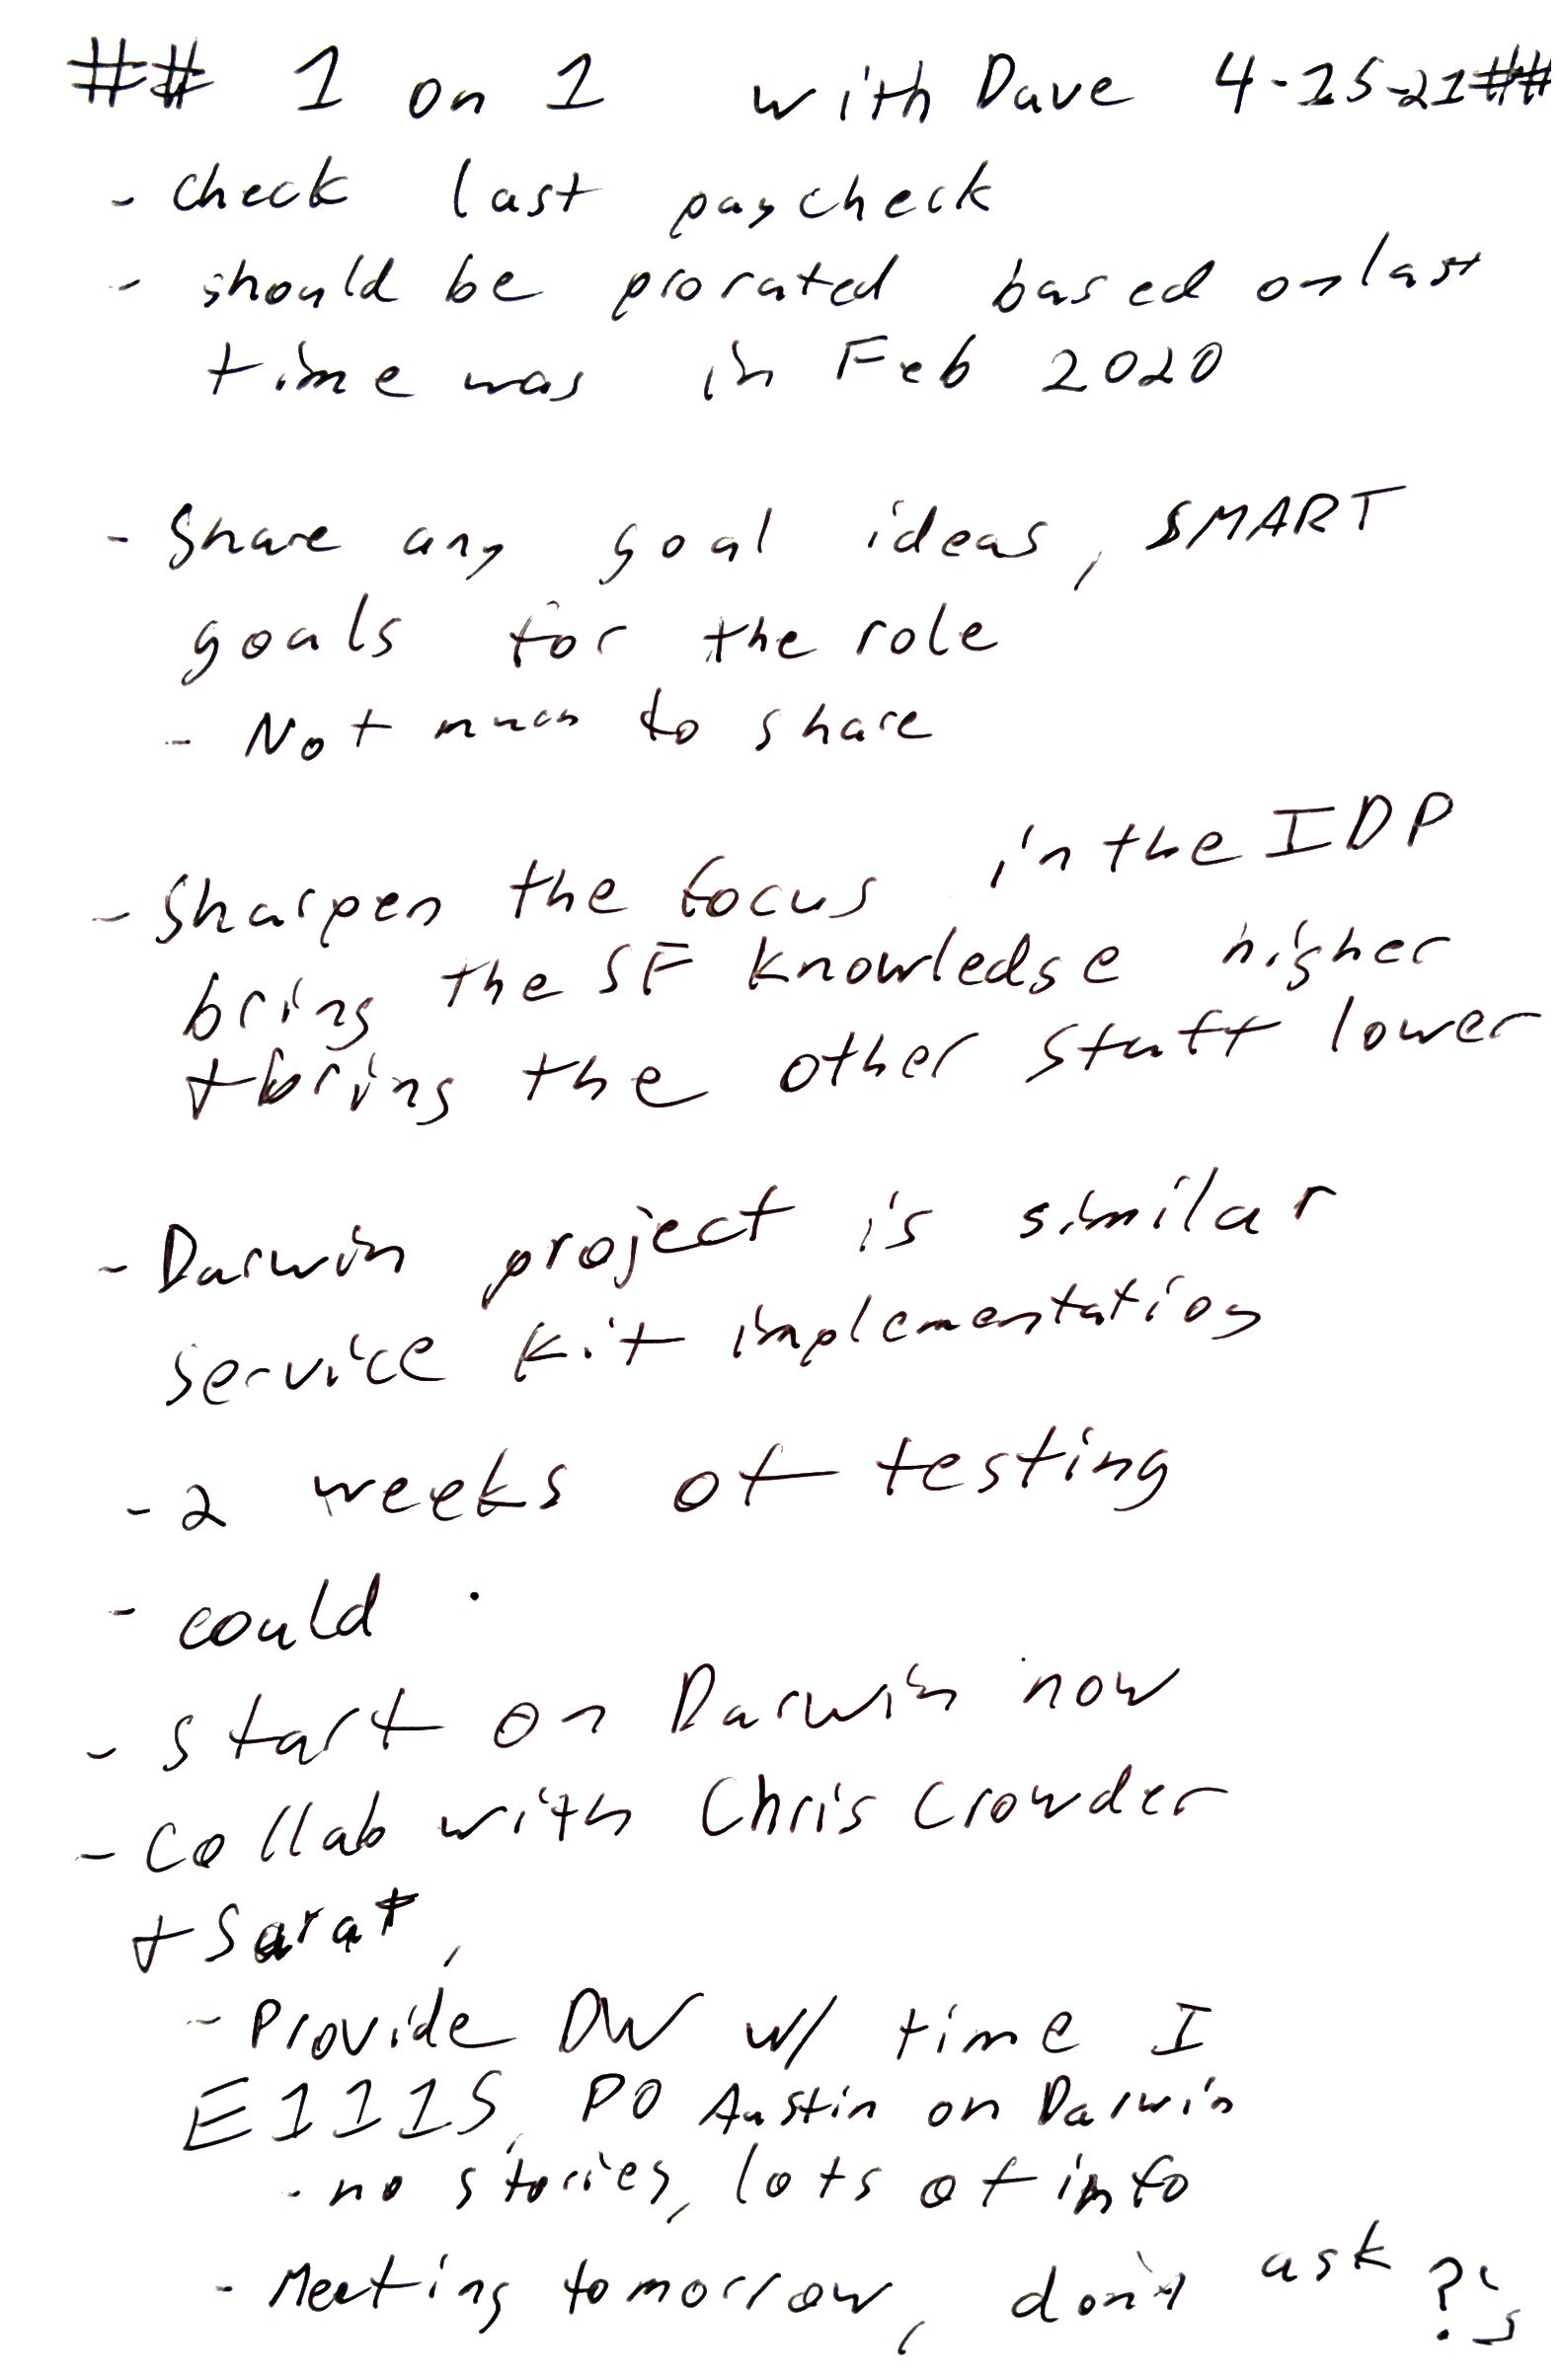 ## 1 on 1 with Dave 4-15-21##
- Check last paycheck
- should be prorated based on last
time was in Feb 2020
- Share any goal ideas, SMART
goals for the role
- Not much to share
- Sharpen the focus in the IDP
bring the SF knowledge higher
+ bring the other stuff lower
- Darwin project is similar
service kit implementation
- 2 weeks of testing
- could
- start on Darwin now
- Collab with Chris Crowder
+ Sarat,
- Provide DW w/ time I
E111S, PO Austin on Darwin
- no stories, lots of info
- Meeting tomorrow, don't ask ?'s